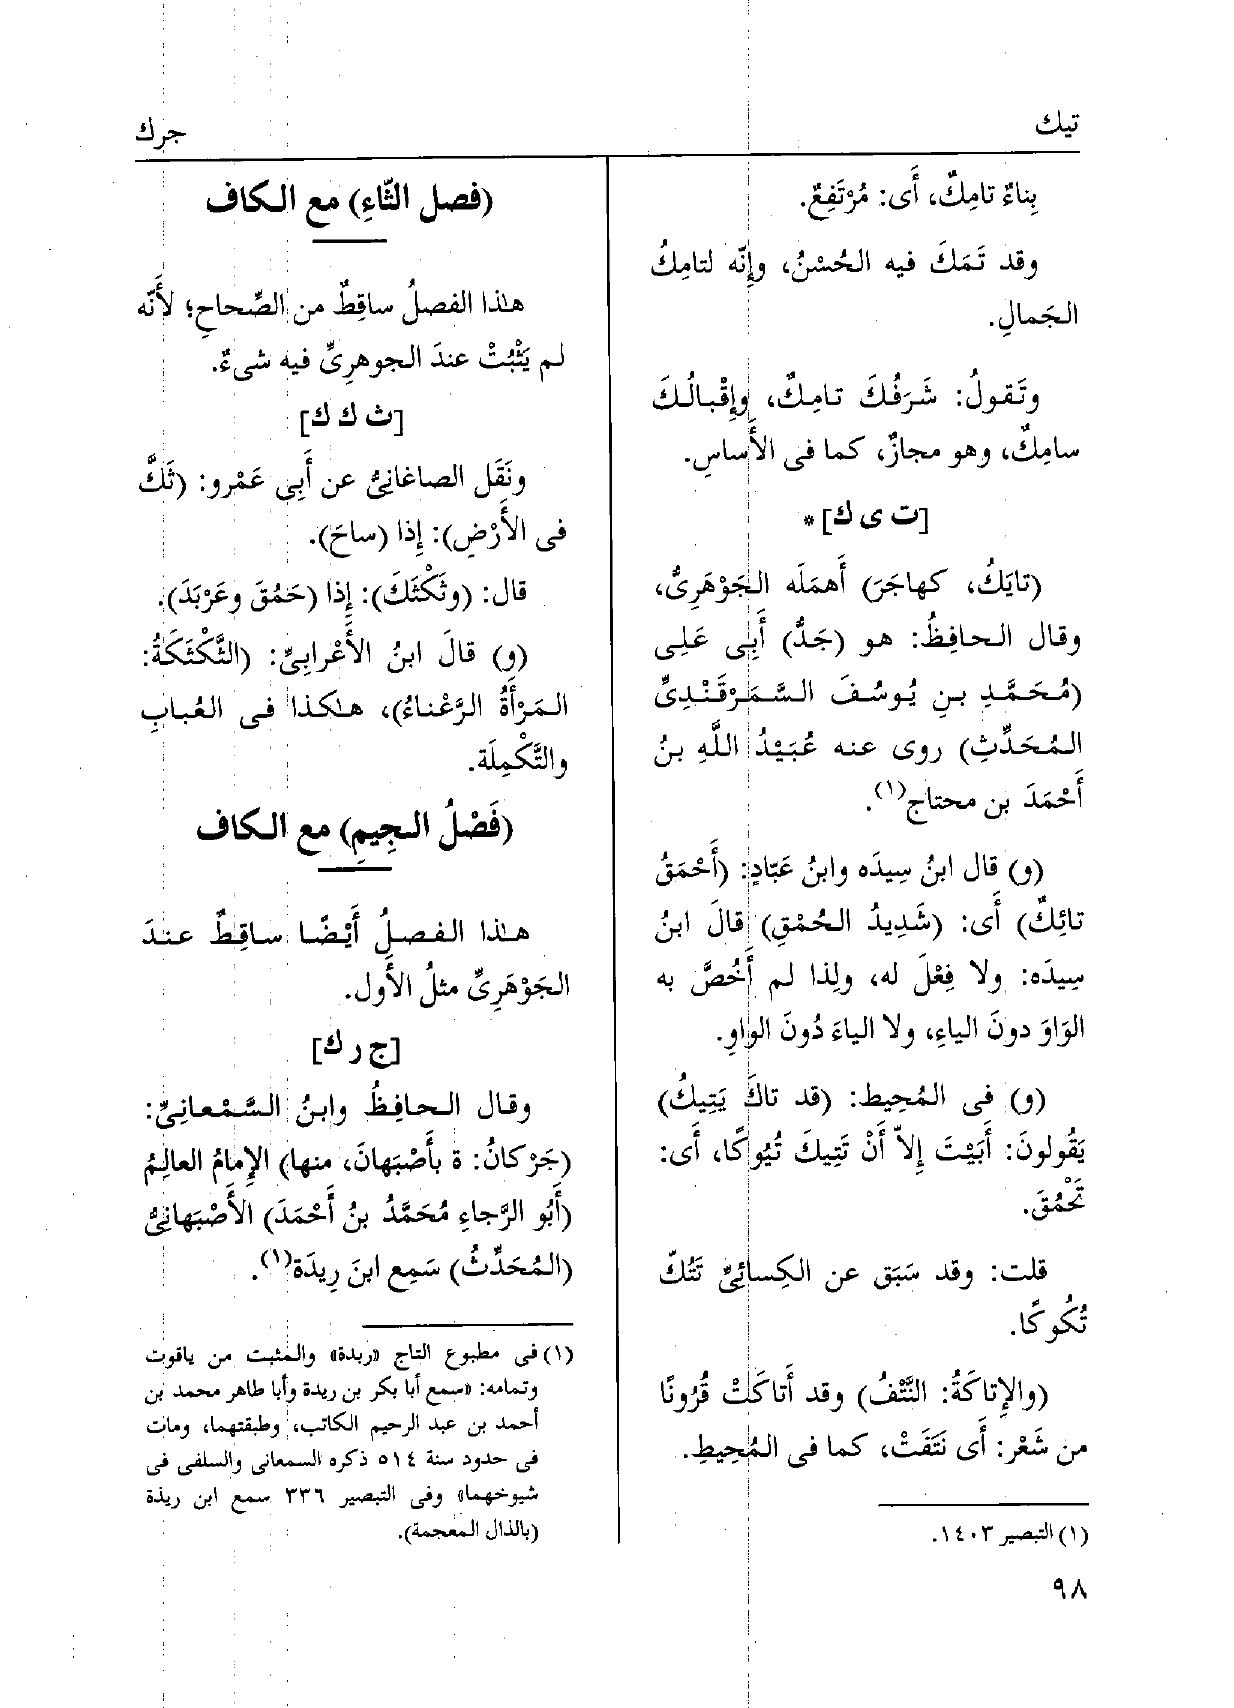 تيك
جرك
بِناءٌ تامِكٌ، أَى: مُرْتَفِعٌ.
وقد تَمَكَ فيه الحُسْنُ، وإِنّه لتامِكُ
الجَمالِ.
وتَقولُ: شَرَفُكَ تامِكٌ، وإِقْبالُكَ
سامِكٌ، وهو مجازٌ، كما فى الأَساسِ.
[ت ى ك] *
(تايَكُ، كهاجَرَ) أَهملَه الجَوْهَرِىُّ،
وقال الحافِظُ: هو (جَدُّ) أَبِى عَلِى
(مُحَمَّدِ بنِ يُوسُفَ السَّمَرْقَنْدِىِّ
المُحَدِّثِ) روى عنه عُبَيْدُ اللَّهِ بنُ
أَحْمَدَ بن محتاج(١).
(و) قال ابنُ سِيدَه وابنُ عَبّادٍ: (أَحْمَقُ
تائِكٌ) أَى: (شَدِيدُ الحُمْقِ) قالَ ابنُ
سِيدَه: ولا فِعْلَ له، ولِذا لم أَخُصَّ به
الوَاوَ دونَ الياءِ، ولا الياءَ دُونَ الوَاوِ.
(و) فى المُحِيط: (قد تاكَ يَتِيكُ)
يَقُولونَ: أَبَيْتَ إِلاّ أَنْ تَتِيكَ تُيُوكًا، أَى:
تَحْمُقَ.
قلت: وقد سَبَق عن الكِسائِىِّ تَتُكّ
تُكُوكًا.
(والإِتاكَةُ: النَّتْفُ) وقد أَتاكَتْ قُرُونًا
من شَعْر: أَى نَتَفَتْ، كما فى المُحِيطِ.
(١) التبصير ١٤٠٣.
(فصل الثّاءِ) مع الكاف
هٰذا الفصلُ ساقِطٌ من الصِّحاحِ؛ لأَنّه
لم يَثْبُتْ عندَ الجوهرِىِّ فيه شىءٌ.
[ث ك ك]
ونَقَل الصاغانِىُّ عن أَبِى عَمْرو: (ثَكَّ
فى الأَرْضِ): إِذا (ساخَ).
قال: (وثَكْثَكَ): إِذا (حَمُقَ وعَرْبَدَ).
(و) قالَ ابنُ الأَعْرابِىِّ: (الثَّكْثَكَةُ:
المَرْأَةُ الرَّعْناءُ)، هٰكذا فى العُبابِ
والتَّكْمِلَة.
(فَصْلُ الجِيمِ) مع الكاف
هٰذا الفصلُ أَيْضًا ساقِطٌ عندَ
الجَوْهَرِىِّ مثلُ الأَول.
[ج ر ك]
وقال الحافِظُ وابنُ السَّمْعانِىِّ:
(جَرْكانُ: ة بأَصْبَهانَ، منها) الإِمامُ العالِمُ
(أَبُو الرَّجاءِ مُحَمَّدُ بنُ أَحْمَدَ) الأَصْبَهانِىُّ
(المُحَدِّثُ) سَمِع ابنَ رِيذَة(١).
(١) فى مطبوع التاج «ربدة» والمثبت من ياقوت
وتمامه: «سمع أبا بكر بن ريذة وأبا طاهر محمد بن
أحمد بن عبد الرحيم الكاتب، وطبقتهما، ومات
فى حدود سنة ٥١٤ ذكره السمعانى والسلفى فى
شيوخهما» وفى التبصير ٣٣٦ سمع ابن ريذة
(بالذال المعجمة).
٩٨